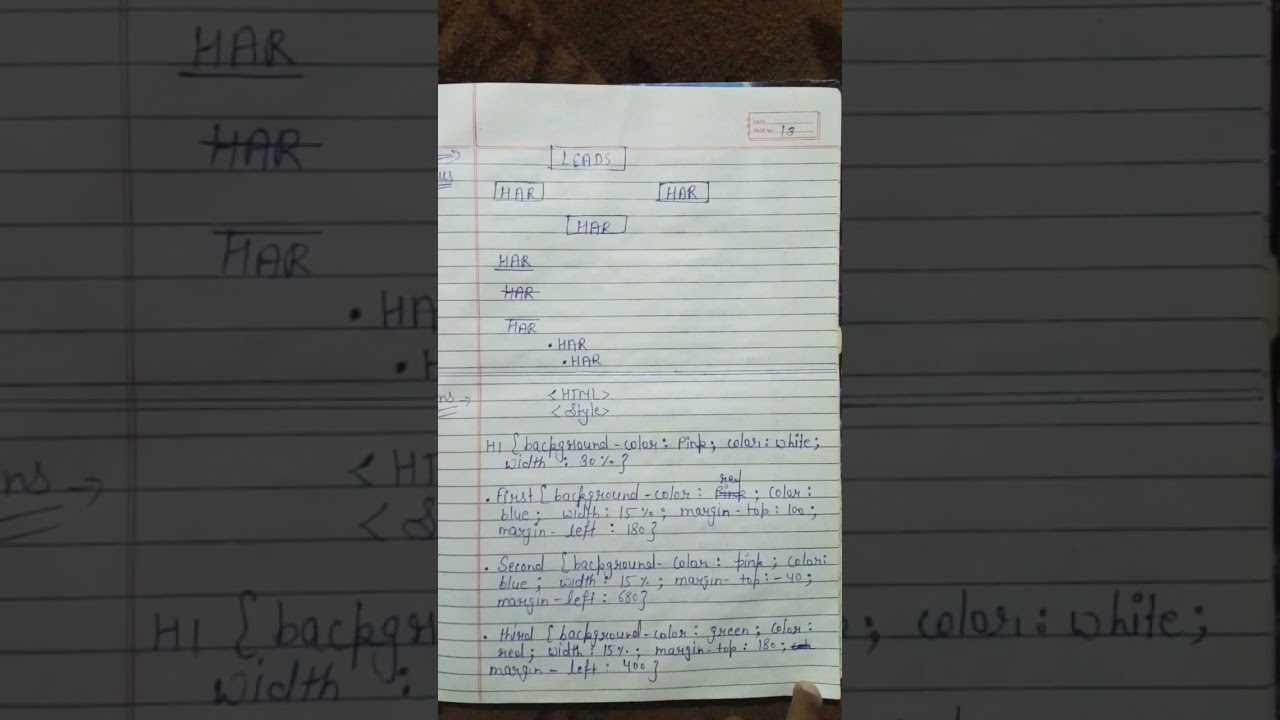 DATE
PAGE No. 13
LEADS
HAR HAR
HAR
HAR
HAR
HAR
• HAR
• HAR
ns → <HTML>
<Style>
H1 {background-color: Pink; color: white;
width : 30%}
red
. First {background-color : Pink ; color :
blue ; width : 15% ; margin-top : 100 ;
margin-left : 180}
. Second {background-color : pink ; color:
blue ; width : 15% ; margin-top : -40 ;
margin-left : 680}
. third {background-color : green ; color :
red ; width : 15% ; margin-top : 180 ;
margin-left : 400}